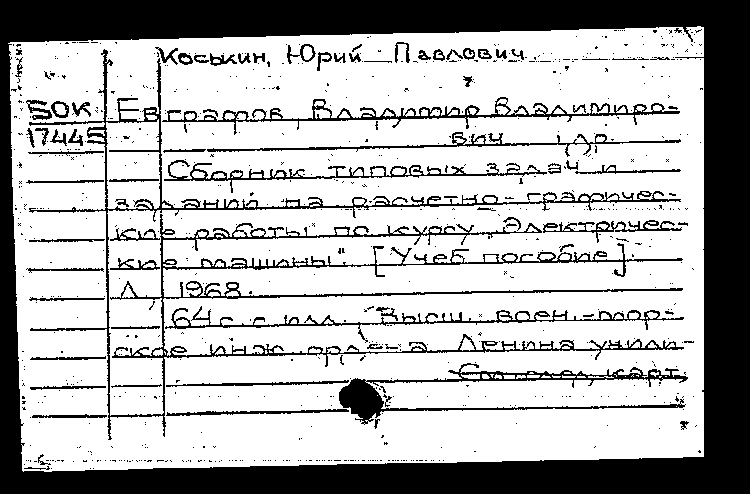 Коськин, Юрий Павлович
БОК Евграфов, Владимир Владимиро-
17445 вич и др.
Сборник типовых задач и
заданий на расчетно-графичес-
кие работы по курсу „Электричес-
кие машины". [Учеб пособие].
Л, 1968.
64 с. с илл. Высш. воен.-мор-
ское инж. ордена Ленина учили-
См. след. карт,